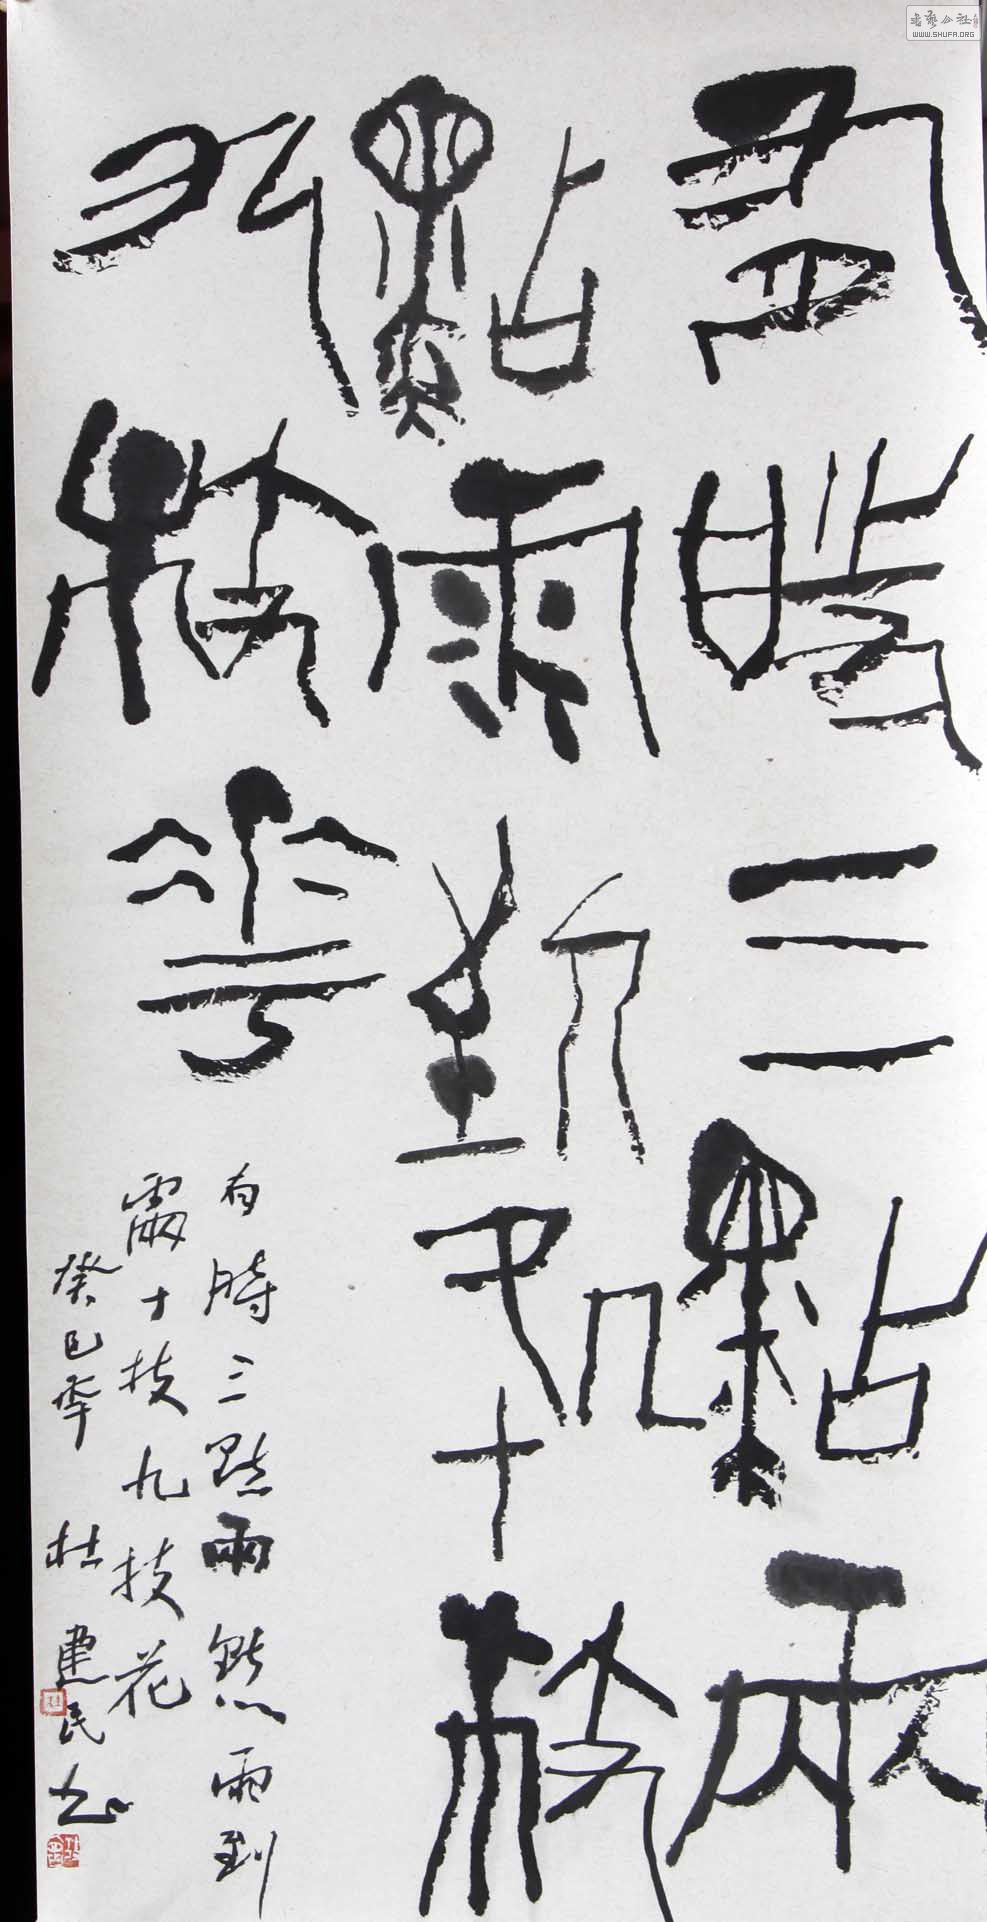 书艺公社
WWW.SHUFA.ORG
有時三點兩
點雨到処十枝
九枝花
有時三點兩點雨到
處十枝九枝花
癸巳年 杜建民书